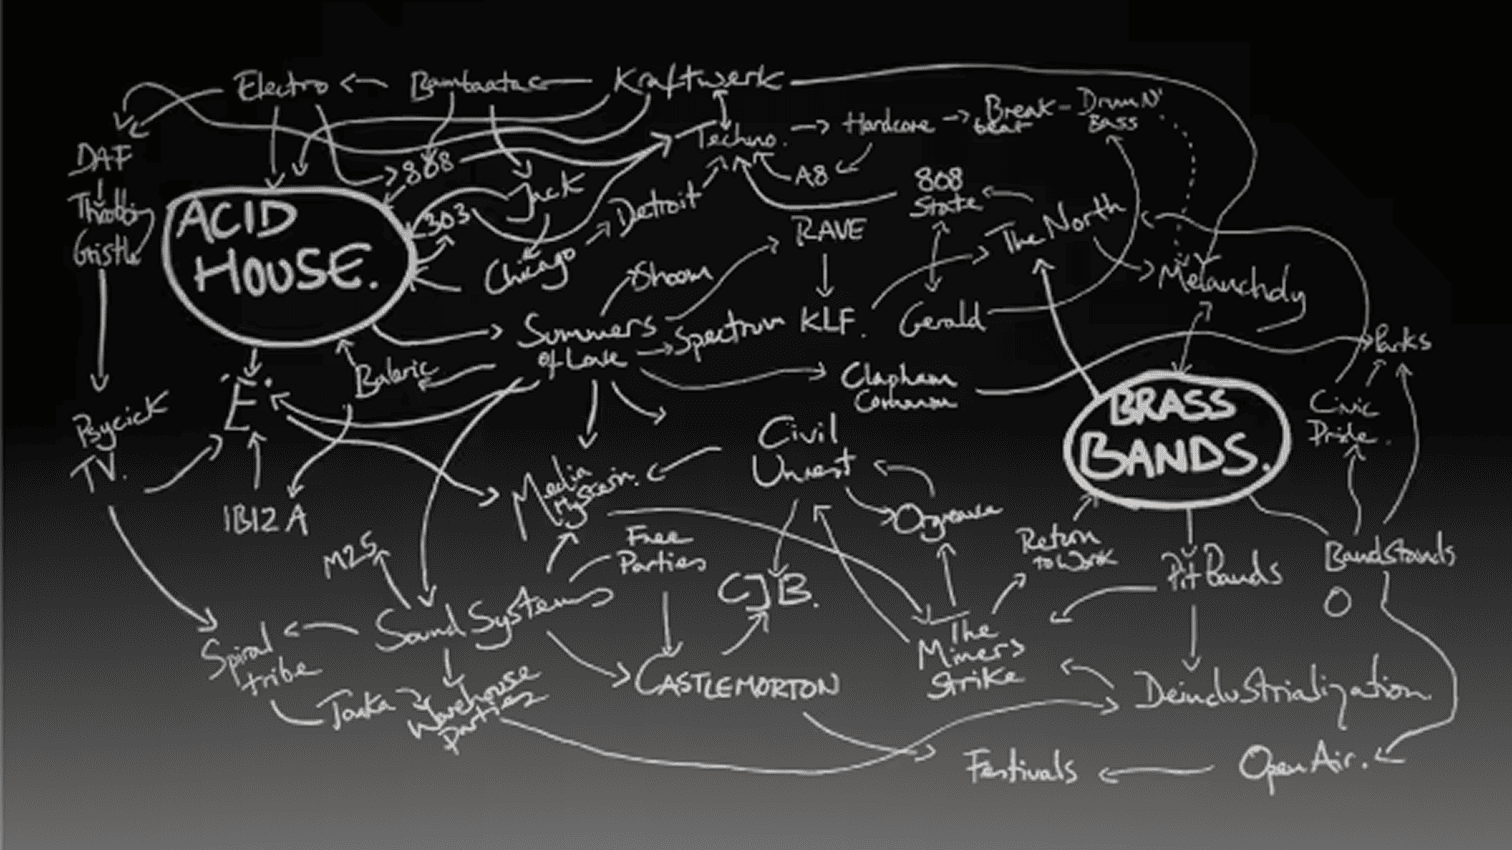 Electro
Bambaataa
Kraftwerk
DAF
Throbbing
Gristle
Techno.
Hardcore
Break
beat
Drum N'
Bass
808
A8
808
State
ACID
HOUSE.
303
Jack
Detroit
Chicago
RAVE
The North
Melancholy
Shoom
Summers
of Love
Spectrum
KLF.
Gerald
Parks
Baleric
'E'.
Clapham
Common
BRASS
BANDS.
Civic
Pride.
Psycick
TV.
IBIZA
Media
Hysteria.
Civil
Unrest
Orgreave
Return
to Work
Pit Bands
Bandstands
M25
Free
Parties
CJB.
Sound Systems
Spiral
tribe
Tonka
Warehouse
parties
CASTLEMORTON
The
Miners
Strike
Deindustrialization
Festivals
Open Air.